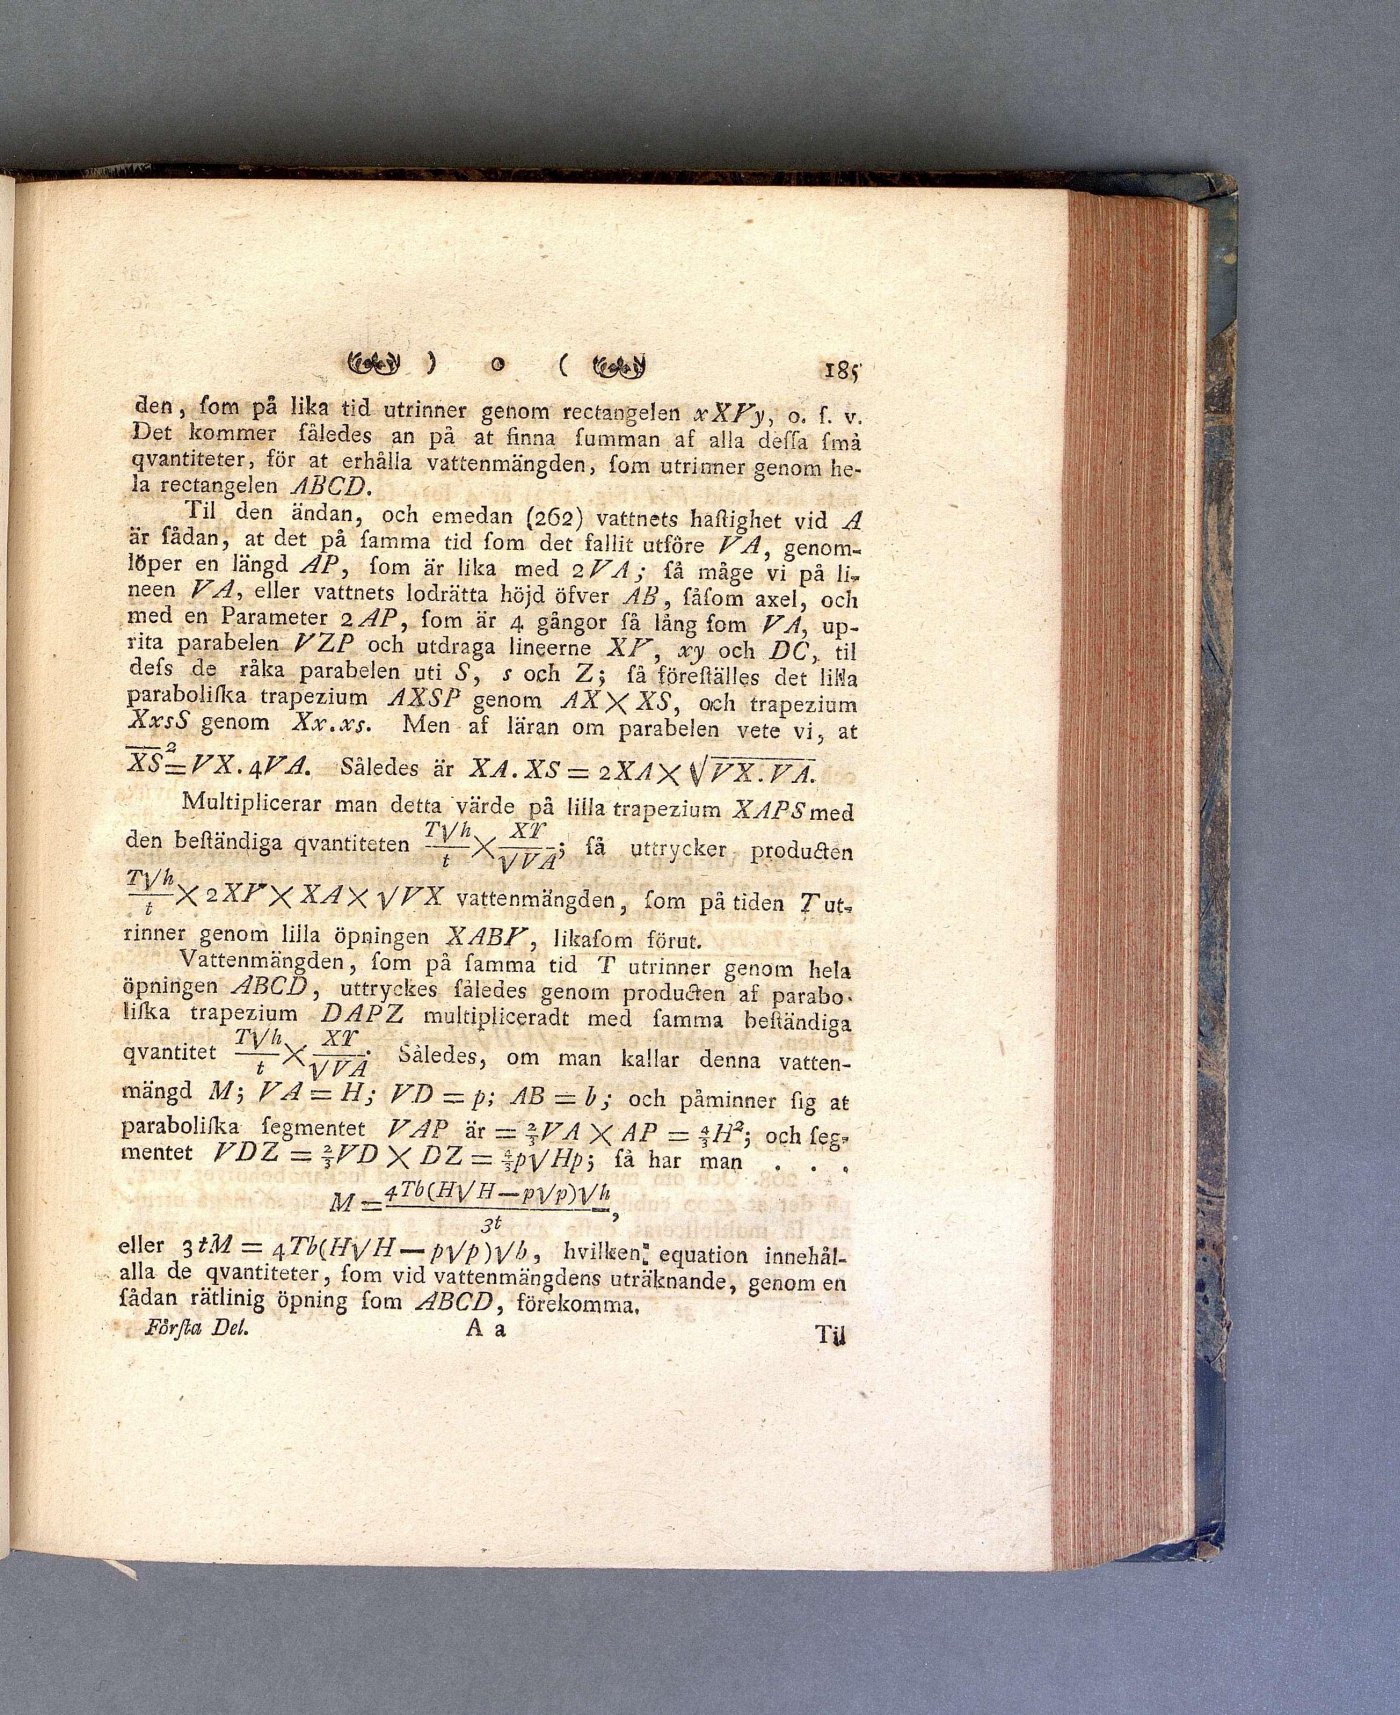 ) o ( 185
den, ſom på lika tid utrinner genom rectangelen xXYy, o. ſ. v.
Det kommer ſåledes an på at finna ſumman af alla deſſa ſmå
qvantiteter, för at erhålla vattenmängden, ſom utrinner genom he-
la rectangelen ABCD.
Til den ändan, och emedan (262) vattnets haſtighet vid A
är ſådan, at det på ſamma tid ſom det fallit utföre VA, genom-
löper en längd AP, ſom är lika med 2VA; ſå måge vi på li-
neen VA, eller vattnets lodrätta höjd öfver AB, ſåſom axel, och
med en Parameter 2AP, ſom är 4 gångor ſå lång ſom VA, up-
rita parabelen VZP och utdraga lineerne XY, xy och DC, til
deſs de råka parabelen uti S, s och Z; ſå föreſtälles det lilla
paraboliſka trapezium AXSP genom AX×XS, och trapezium
XxsS genom Xx.xs. Men af läran om parabelen vete vi, at
X̅S̅²=VX.4VA. Således är XA.XS=2XA×√V̅X̅.̅V̅A̅.
Multiplicerar man detta värde på lilla trapezium XAPS med
den beſtändiga qvantiteten T√h/t × XY/√VA; ſå uttrycker producten
T√h/t × 2XY×XA×√VX vattenmängden, ſom på tiden T ut-
rinner genom lilla öpningen XABY, likaſom förut.
Vattenmängden, ſom på ſamma tid T utrinner genom hela
öpningen ABCD, uttryckes ſåledes genom producten af parabo-
liſka trapezium DAPZ multipliceradt med ſamma beſtändiga
qvantitet T√h/t × XY/√VA. Således, om man kallar denna vatten-
mängd M; VA=H; VD=p; AB=b; och påminner ſig at
paraboliſka ſegmentet VAP är =⅔VA×AP=4/3H²; och ſeg-
mentet VDZ=⅔VD×DZ=4/3p√Hp; ſå har man . . .
M=4Tb(H√H—p√p)√h/3t,
eller 3tM=4Tb(H√H—p√p)√h, hvilken equation innehål-
alla de qvantiteter, ſom vid vattenmängdens uträknande, genom en
ſådan rätlinig öpning ſom ABCD, förekomma.
Förſta Del. A a Til